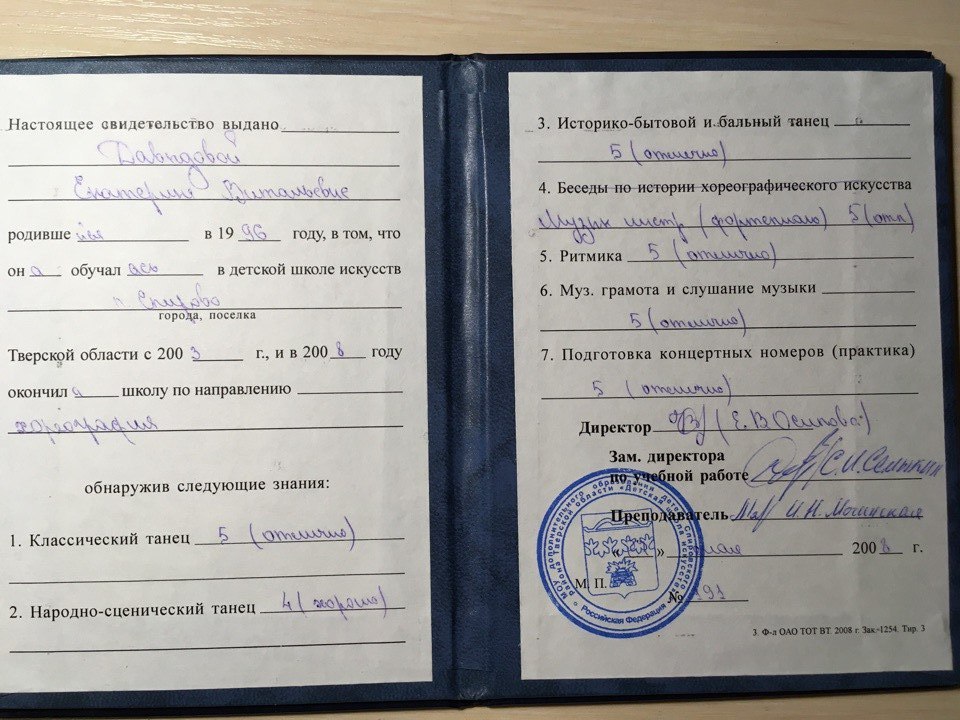 Настоящее свидетельство выдано
Давыдовой
Екатерине Витальевне
родивше йся в 19 96 году, в том, что
он а обучал ась в детской школе искусств
п. Спирово
города, поселка
Тверской области с 200 3 г., и в 200 8 году
окончил а школу по направлению
хореография
обнаружив следующие знания:
1. Классический танец 5 (отлично)
2. Народно-сценический танец 4 (хорошо)
3. Историко-бытовой и бальный танец
5 (отлично)
4. Беседы по истории хореографического искусства
Музык инстр (фортепиано) 5 (отл)
5. Ритмика 5 (отлично)
6. Муз. грамота и слушание музыки
5 (отлично)
7. Подготовка концертных номеров (практика)
5 (отлично)
Директор (Е. В Осипова)
Зам. директора
по учебной работе
Преподаватель И. Н.
« » мая 2008 г.
М. П.
№ 191
МОУ дополнительного образования детей Спировского
района Тверской области «Детская школа искусств»
Российская Федерация
3. Ф-л ОАО ТОТ ВТ. 2008 г. Зак. 1254. Тир. 3